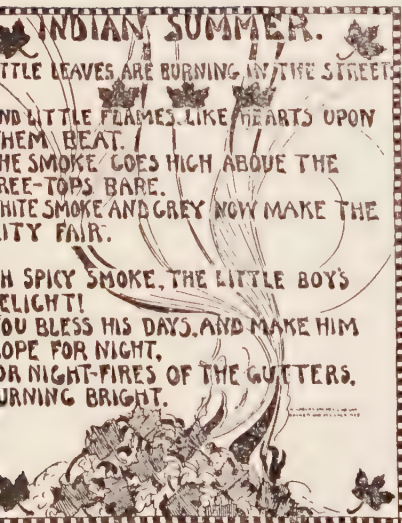 INDIAN SUMMER.
TTLE LEAVES ARE BURNING IN THE STREETS
ND LITTLE FLAMES LIKE HEARTS UPON
HEM BEAT.
HE SMOKE GOES HIGH ABOVE THE
REE-TOPS BARE.
HITE SMOKE AND GREY NOW MAKE THE
ITY FAIR.
H SPICY SMOKE, THE LITTLE BOY'S
ELIGHT!
OU BLESS HIS DAYS, AND MAKE HIM
OPE FOR NIGHT,
OR NIGHT-FIRES OF THE GUTTERS,
URNING BRIGHT.